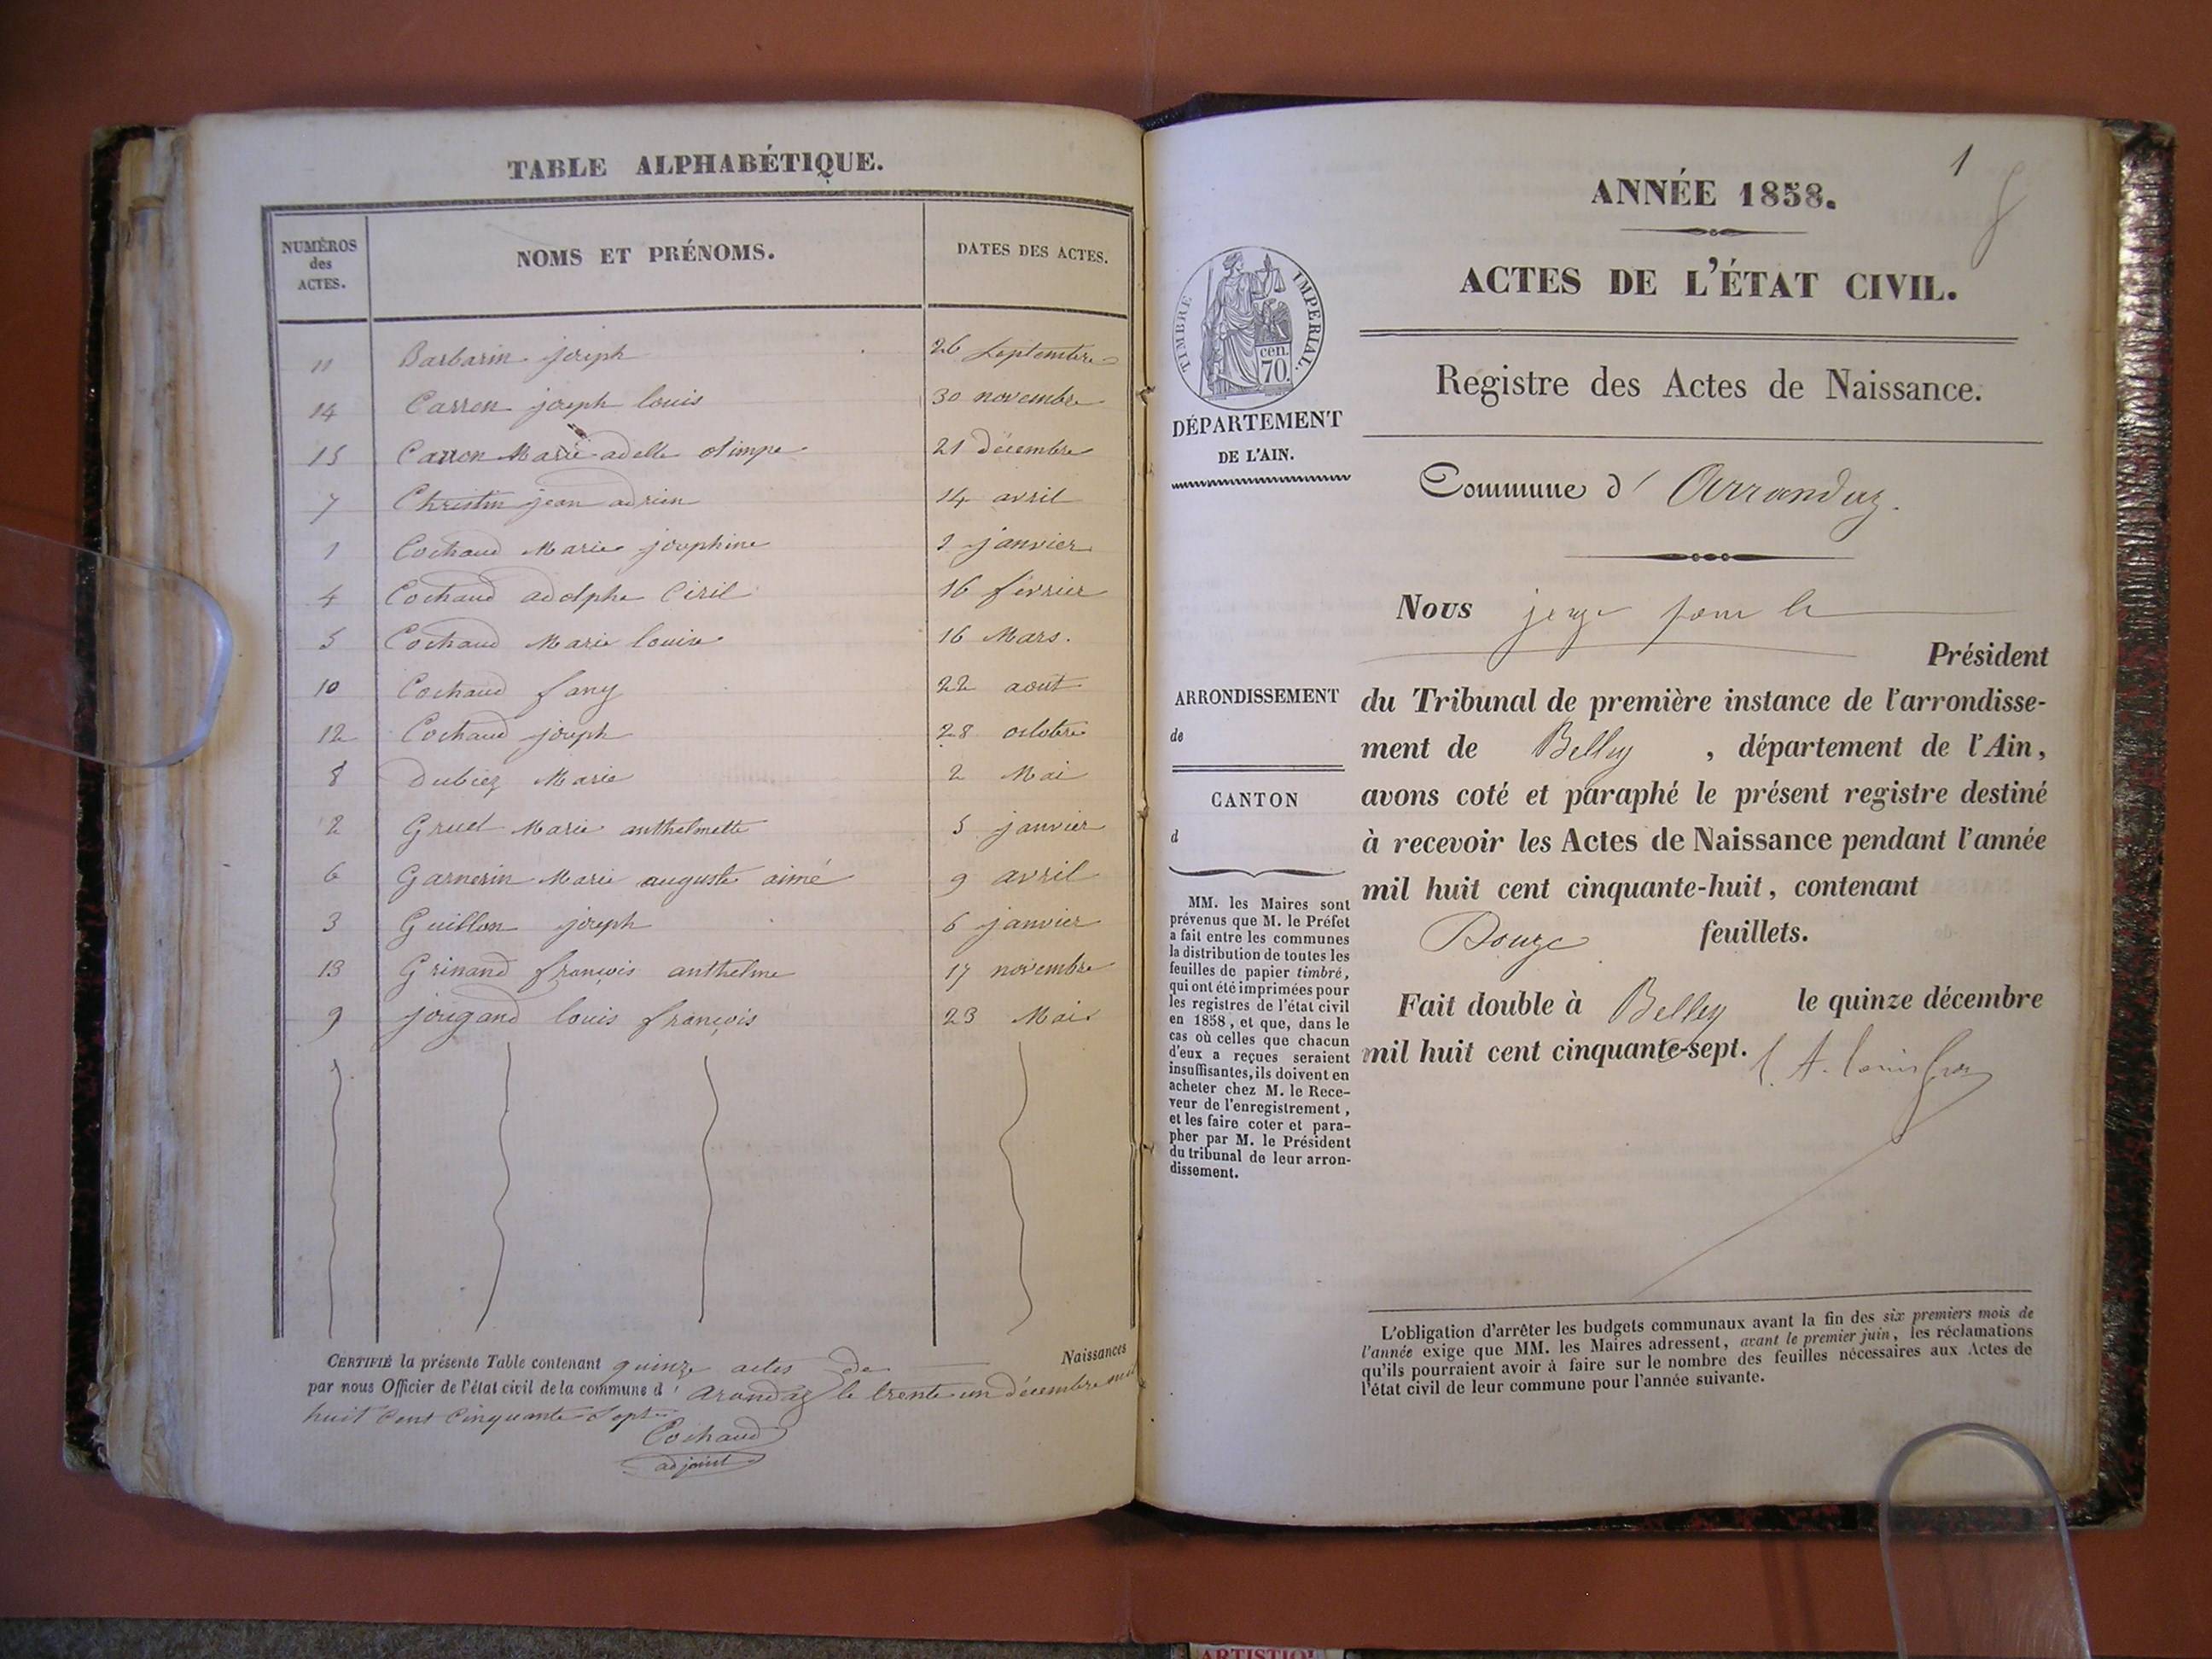 TABLE ALPHABÉTIQUE.
NUMÉROS des ACTES. NOMS ET PRÉNOMS. DATES DES ACTES.
11 Barbarin joseph 26 Septembre
14 Carron joseph louis 30 novembre
15 Carron Marie adelle olimpe 21 décembre
7 Christin jean adrien 14 avril
1 Cochaud Marie josephine 1 janvier
4 Cochaud adolphe Ciril 16 février
5 Cochaud Marie louise 16 Mars.
10 Cochaud fany 22 aout
12 Cochaud joseph 28 octobre
8 dubiez Marie 2 Mai
2 Gruel Marie anthelmette 5 janvier
6 Garnerin Marie auguste aimé 9 avril
3 Guillon joseph 6 janvier
13 Grinand françois anthelme 17 novembre
9 jougand louis françois 23 Mai
CERTIFIÉ la présente Table contenant quinze actes de Naissances
par nous Officier de l'état civil de la commune d' arandaz le trente un décembre mil
huit Cent Cinquante Sept
Cochaud
adjoint
1
ANNÉE 1858.
ACTES DE L'ÉTAT CIVIL.
TIMBRE IMPERIAL.
cen. 70.
Registre des Actes de Naissance.
DÉPARTEMENT
DE L'AIN.
Commune d' Arrandaz.
Nous juge pour le
Président
ARRONDISSEMENT
de
du Tribunal de première instance de l'arrondisse-
ment de Belley, département de l'Ain,
CANTON
d
avons coté et paraphé le présent registre destiné
à recevoir les Actes de Naissance pendant l'année
mil huit cent cinquante-huit, contenant
Douze feuillets.
Fait double à Belley le quinze décembre
mil huit cent cinquante-sept.
MM. les Maires sont
prévenus que M. le Préfet
a fait entre les communes
la distribution de toutes les
feuilles de papier timbré,
qui ont été imprimées pour
les registres de l'état civil
en 1858, et que, dans le
cas où celles que chacun
d'eux a reçues seraient
insuffisantes, ils doivent en
acheter chez M. le Rece-
veur de l'enregistrement,
et les faire coter et para-
pher par M. le Président
du tribunal de leur arron-
dissement.
L'obligation d'arrêter les budgets communaux avant la fin des six premiers mois de
l'année exige que MM. les Maires adressent, avant le premier juin, les réclamations
qu'ils pourraient avoir à faire sur le nombre des feuilles nécessaires aux Actes de
l'état civil de leur commune pour l'année suivante.